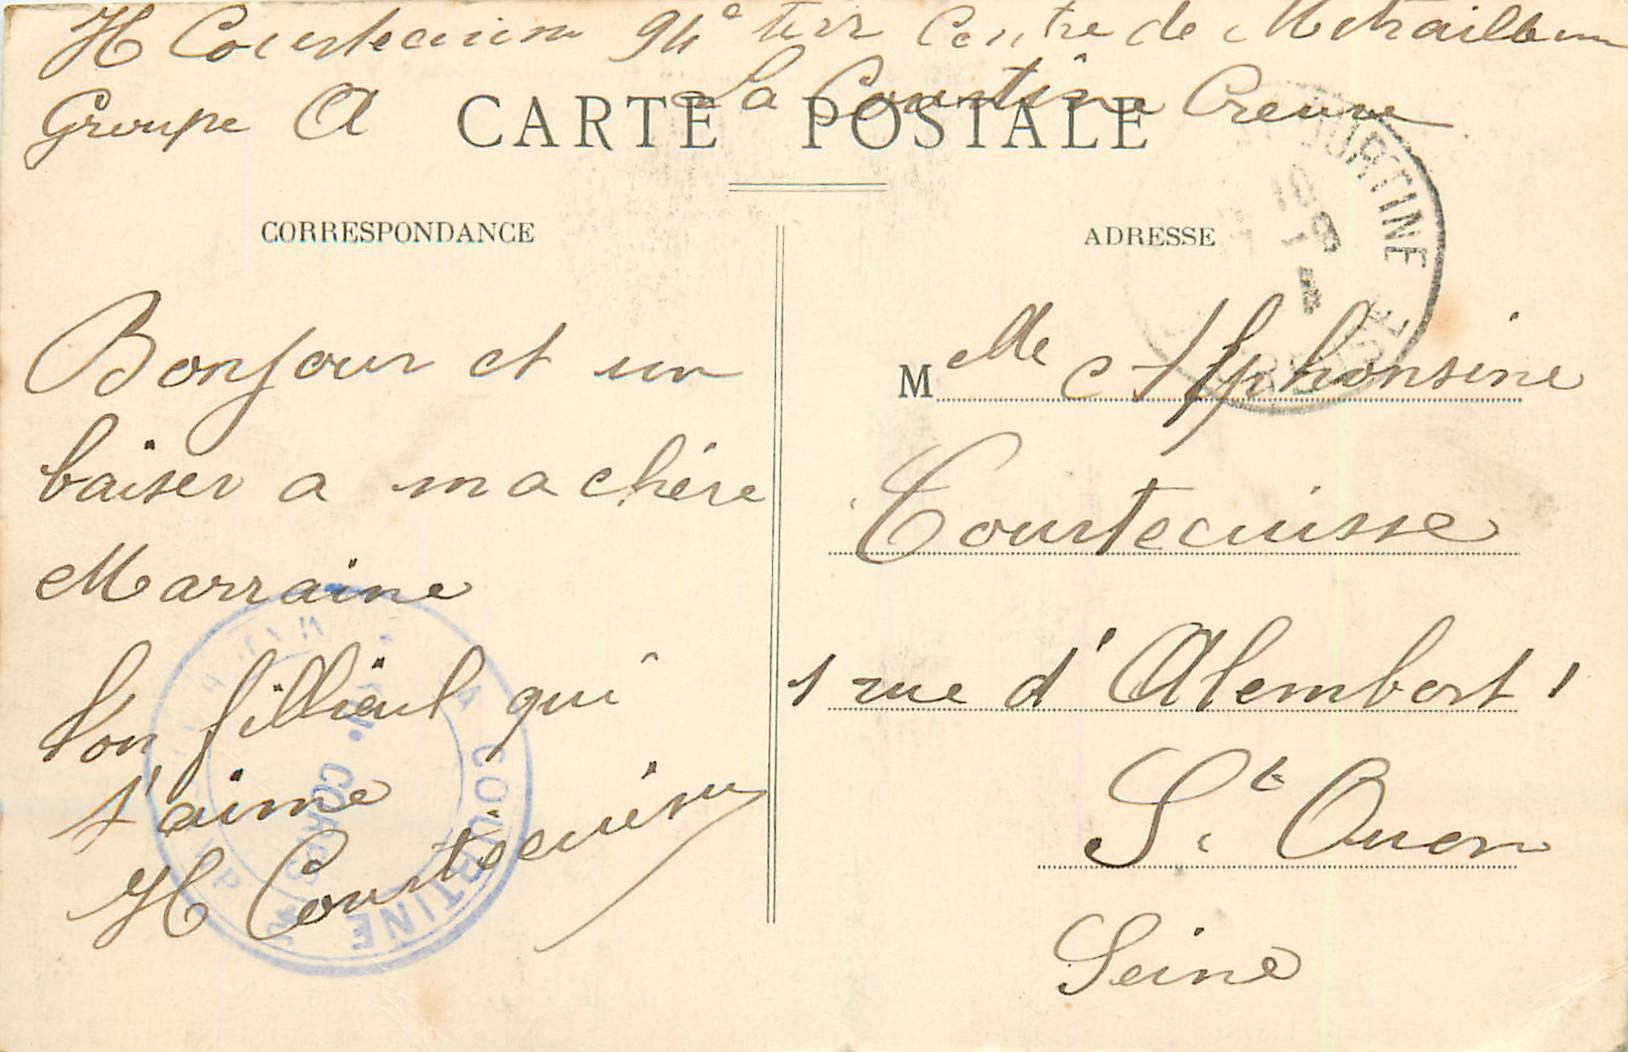 H Courtecuisse 94e terr Centre de Mitrailleuses
Groupe A La Courtine Creuse
CARTE POSTALE
CORRESPONDANCE
ADRESSE
Bonjour et un
baiser a ma chére
Marraine
Ton filleul qui
t'aime
H Courtecuisse
Melle Alphonsine
Courtecuisse
1 rue d'Alembert 1
St Ouen
Seine
COURTINE
CREUSE
LA COURTINE
CORPS